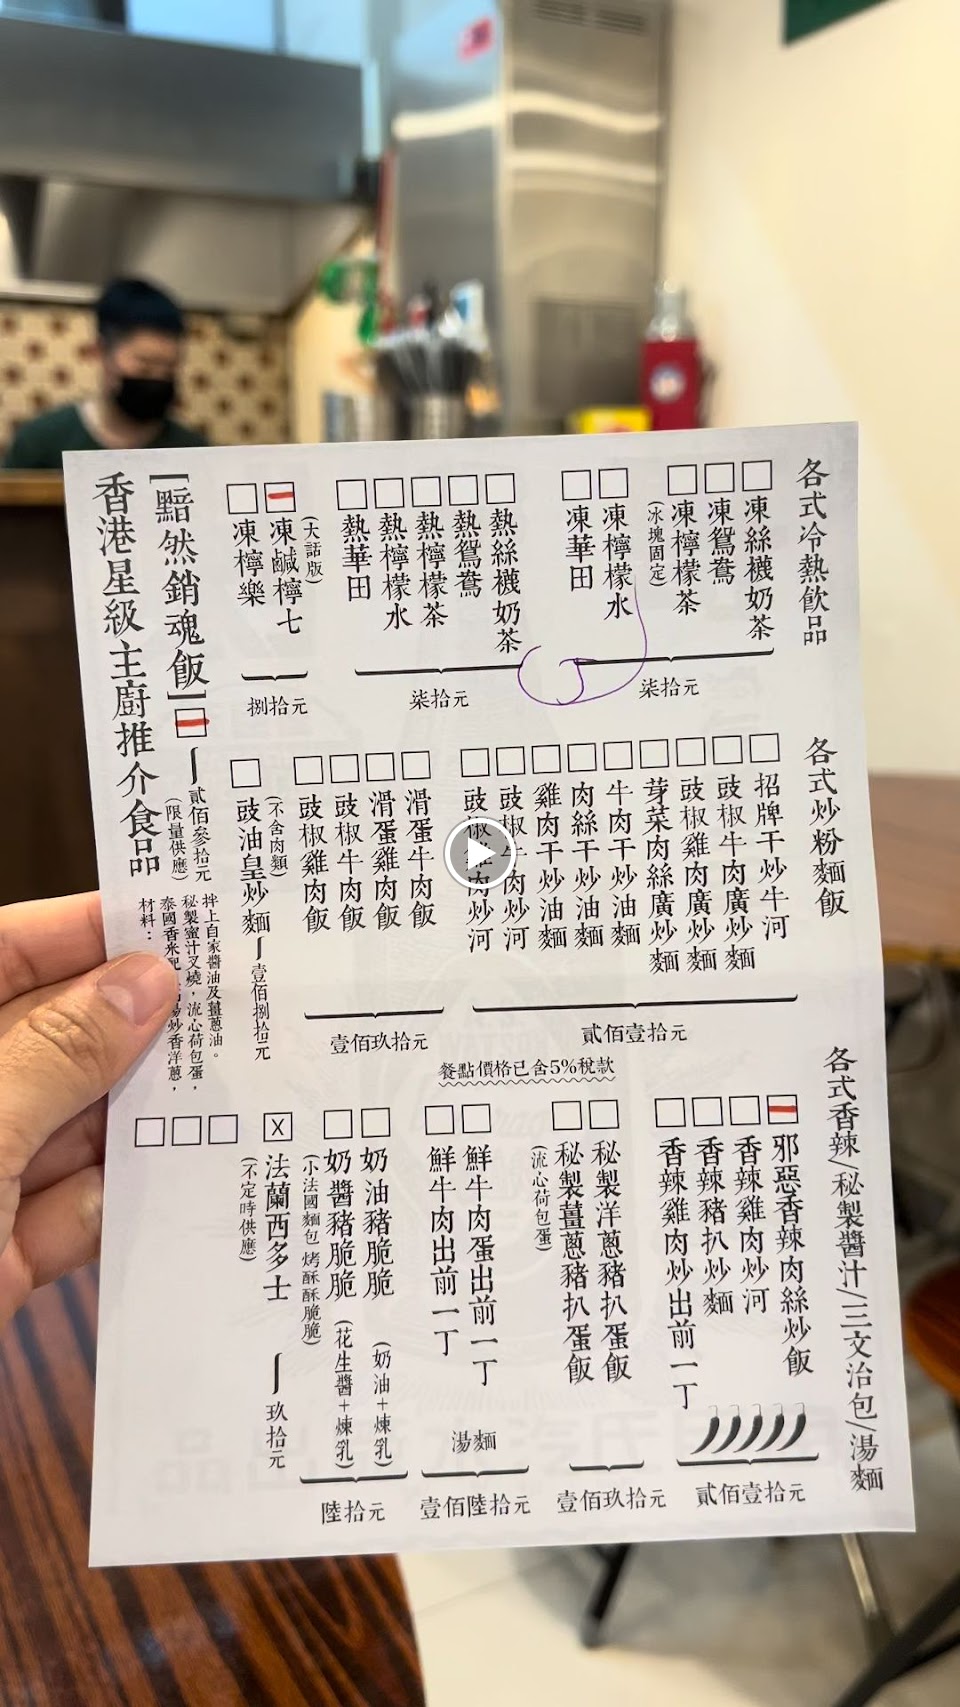 各式冷熱飲品
凍絲襪奶茶
凍鴛鴦
凍檸檬茶
(冰塊固定)
凍檸檬水
凍華田
柒拾元
熱絲襪奶茶
熱鴛鴦
熱檸檬茶
熱檸檬水
熱華田
柒拾元
(大話版)
凍鹹檸七
凍檸樂
捌拾元
各式炒粉麵飯
招牌干炒牛河
豉椒牛肉廣炒麵
豉椒雞肉廣炒麵
芽菜肉絲廣炒麵
牛肉干炒油麵
肉絲干炒油麵
雞肉干炒油麵
豉椒牛肉炒河
豉椒雞肉炒河
貳佰壹拾元
滑蛋牛肉飯
滑蛋雞肉飯
豉椒牛肉飯
豉椒雞肉飯
壹佰玖拾元
(不含肉類)
豉油皇炒麵
壹佰捌拾元
餐點價格已含5%稅款
各式香辣/秘製醬汁/三文治包/湯麵
邪惡香辣肉絲炒飯
香辣雞肉炒河
香辣豬扒炒麵
香辣雞肉炒出前一丁
貳佰壹拾元
秘製洋蔥豬扒蛋飯
秘製薑蔥豬扒蛋飯
(流心荷包蛋)
壹佰玖拾元
鮮牛肉蛋出前一丁
鮮牛肉出前一丁
湯麵
壹佰陸拾元
奶油豬脆脆 (奶油+煉乳)
奶醬豬脆脆 (花生醬+煉乳)
(小法國麵包 烤酥酥脆脆)
陸拾元
X
法蘭西多士
玖拾元
(不定時供應)
香港星級主廚推介食品
[黯然銷魂飯]
貳佰參拾元
(限量供應)
材料：
泰國香米
炒香洋蔥，
秘製蜜汁叉燒，流心荷包蛋，
拌上自家醬油及薑蔥油。